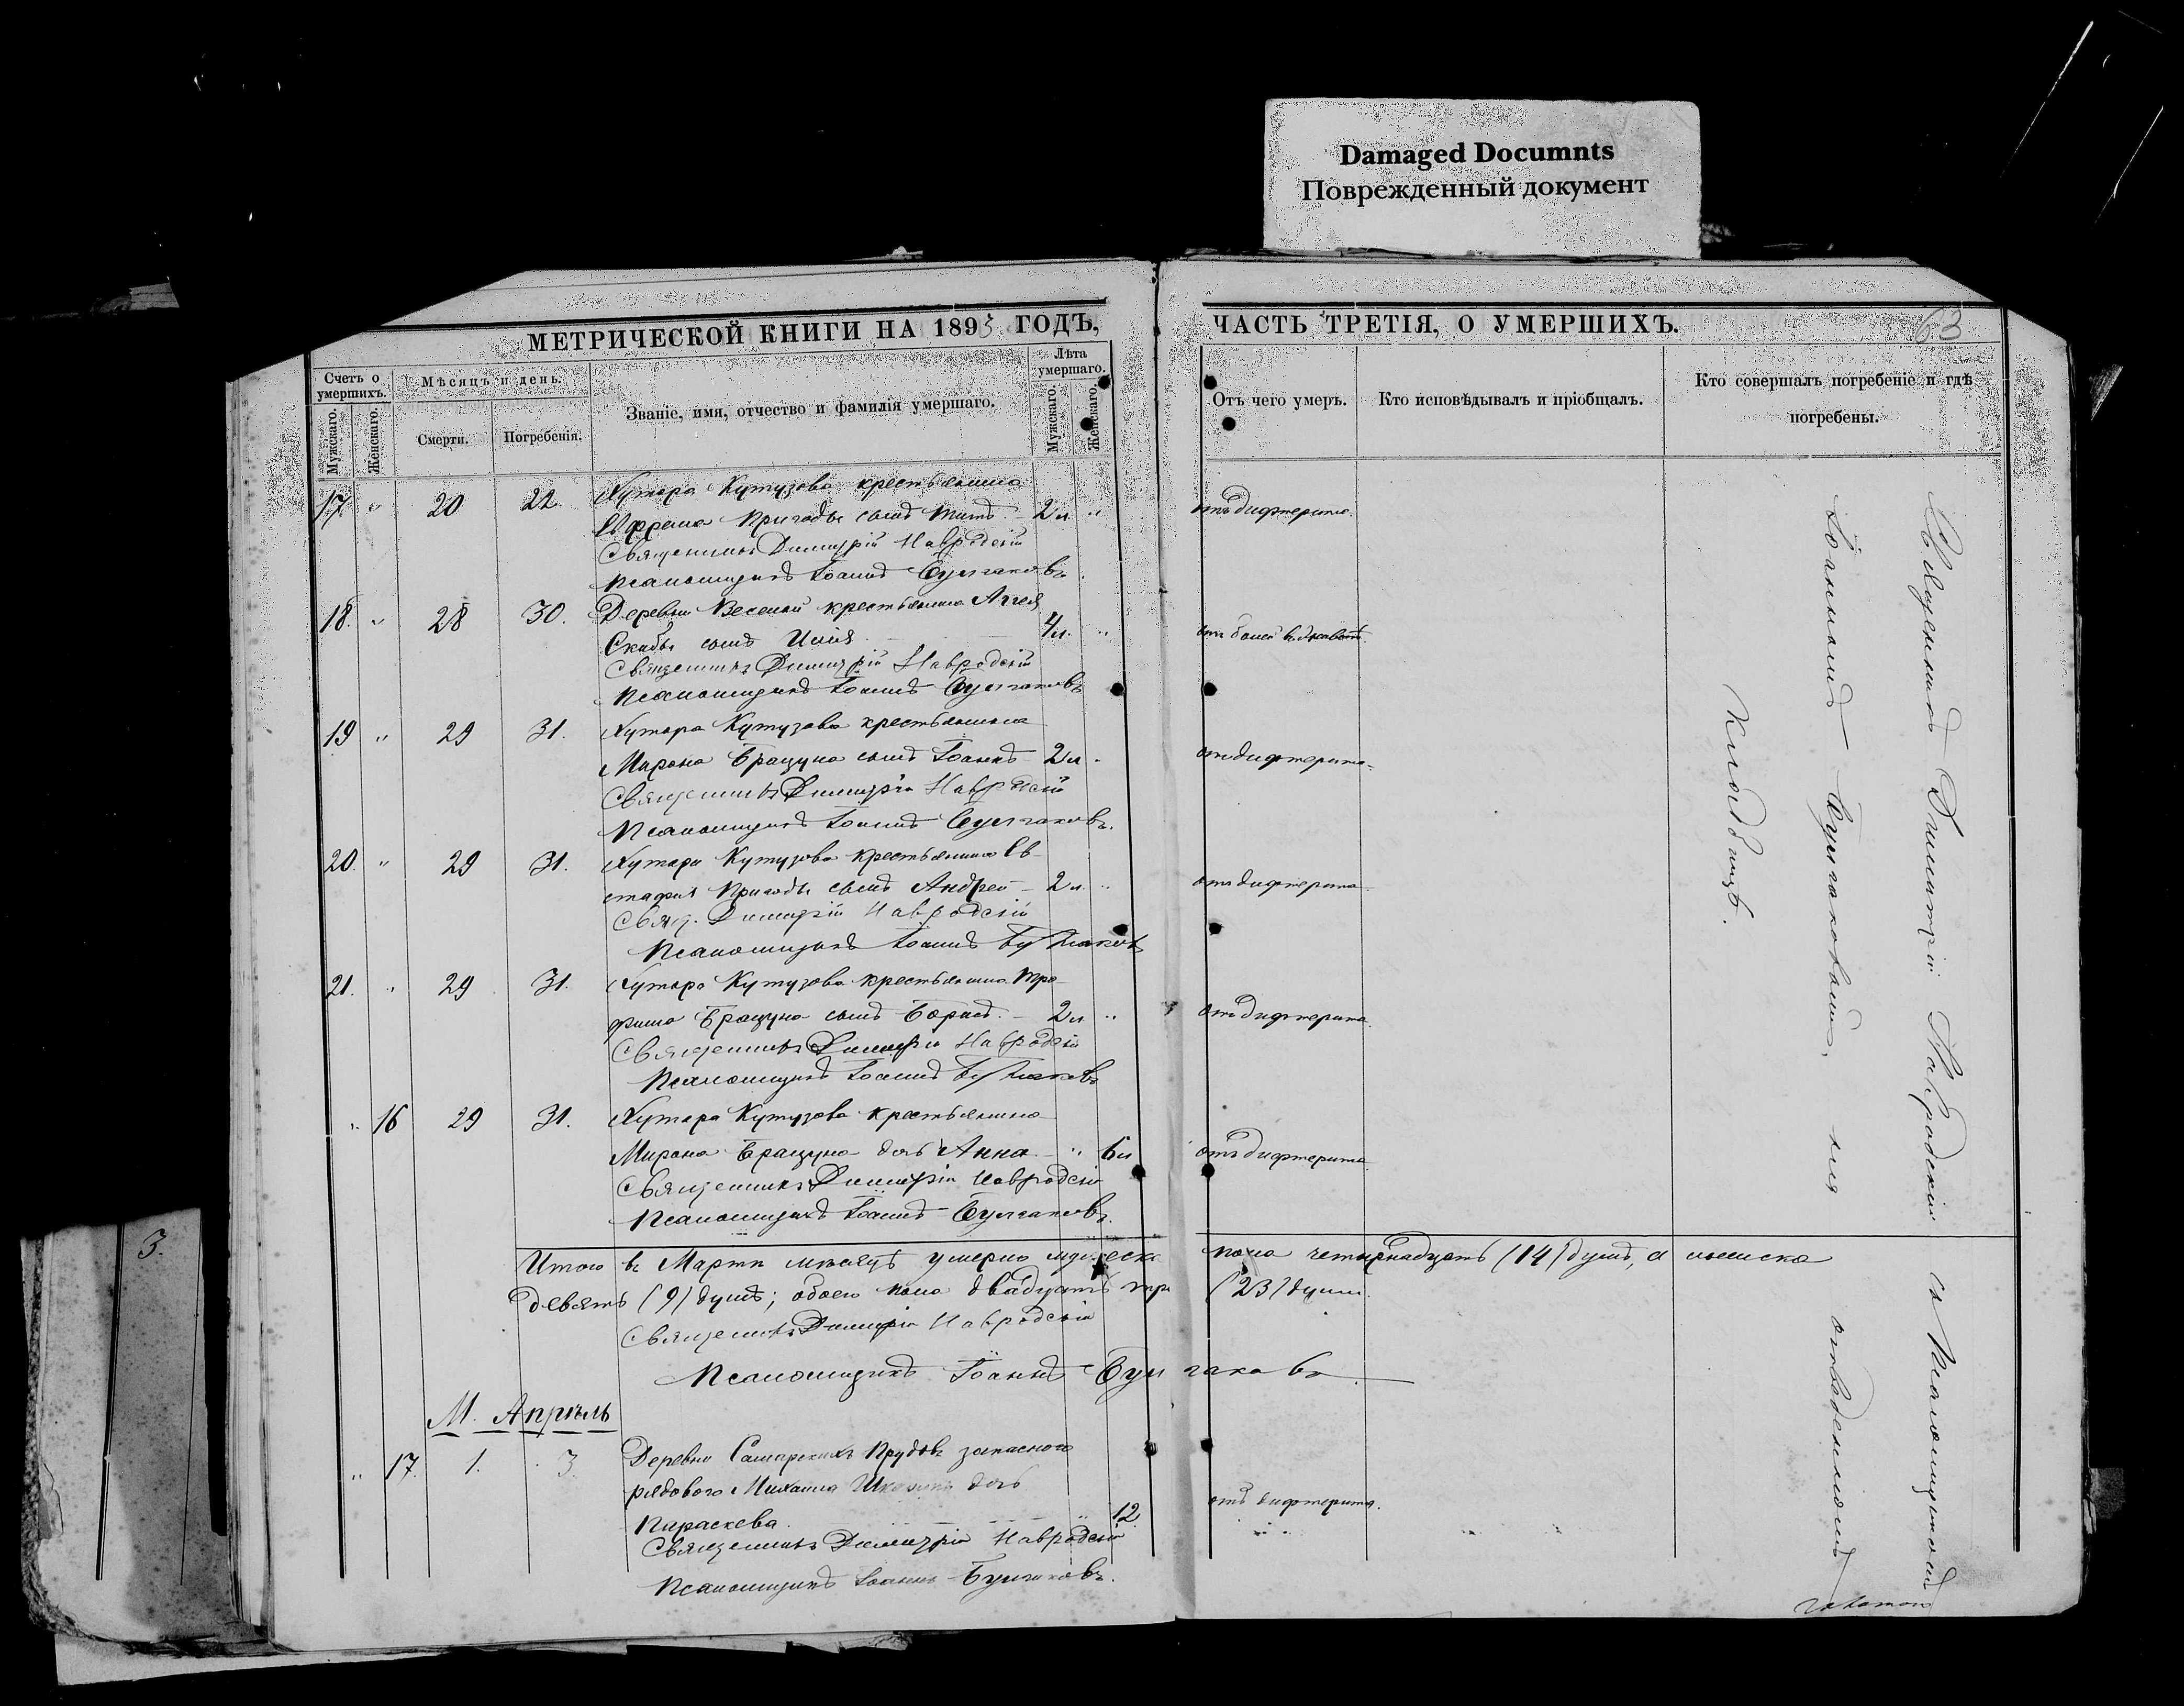 Damaged Documnts
Поврежденный документ
МЕТРИЧЕСКОЙ КНИГИ НА 1893 ГОДЪ,
ЧАСТЬ ТРЕТІЯ, О УМЕРШИХЪ.
63
Счетъ о умершихъ.
Мужскаго.
Женскаго.
Мѣсяцъ и день.
Смерти.
Погребенія.
Званіе, имя, отчество и фамилія умершаго.
Лѣта умершаго.
Мужскаго.
Женскаго.
Отъ чего умеръ.
Кто исповѣдывалъ и пріобщалъ.
Кто совершалъ погребеніе и гдѣ
погребены.
17 " 20 22. Хутора Кутузова крестьянина
Ефрема Пригоды сынъ Титъ 2 л. " отъ дифтерита.
Священникъ Димитрій Навродскій
Псаломщикъ Іоаннъ Булгаковъ.
18. " 28 30. Деревни Веселой крестьянина Аггея
Скибы сынъ Илія 4 л. " отъ
Священникъ Димитрій Навродскій
Псаломщикъ Іоаннъ Булгаковъ
19 " 29 31. Хутора Кутузова крестьянина
Мирона Брацуна сынъ Іоаннъ 2 л отъ дифтерита
Священникъ Димитрій Навродскій
Псаломщикъ Іоаннъ Булгаковъ.
20. " 29 31. Хутора Кутузова крестьянина Ев-
стафія Пригоды сынъ Андрей 2 л. " отъ дифтерита
Свящ. Димитрій Навродскій
Псаломщикъ Іоаннъ Булгаковъ
21. " 29 31. Хутора Кутузова крестьянина Тро-
фима Брацуна сынъ Борисъ. 2 л " отъ дифтерита.
Священникъ Димитрій Навродскій
Псаломщикъ Іоаннъ Булгаковъ
" 16 29 31. Хутора Кутузова крестьянина
Мирона Брацуна дочь Анна " 6 л отъ дифтерита
Священникъ Димитрій Навродскій
Псаломщикъ Іоаннъ Булгаковъ.
Итого въ Мартѣ мѣсяцѣ умерло мужеска пола четырнадцать (14) душъ, а женска
девять (9) душъ; обоего пола двадцать три (23) души.
Священникъ Димитрій Навродскій
Псаломщикъ Іоаннъ Булгаковъ.
М. Апрѣль
" 17. 1. 3. Деревни Самарскихъ Прудовъ запаснаго
рядового Михаила дочь
Параскева. 12 отъ дифтерита.
Священникъ Димитрій Навродскій
Псаломщикъ Іоаннъ Булгаковъ.
Священникъ Димитрій Навродскій и Псаломщикомъ
Іоанномъ Булгаковымъ, на отведенномъ
кладбищѣ.
3.